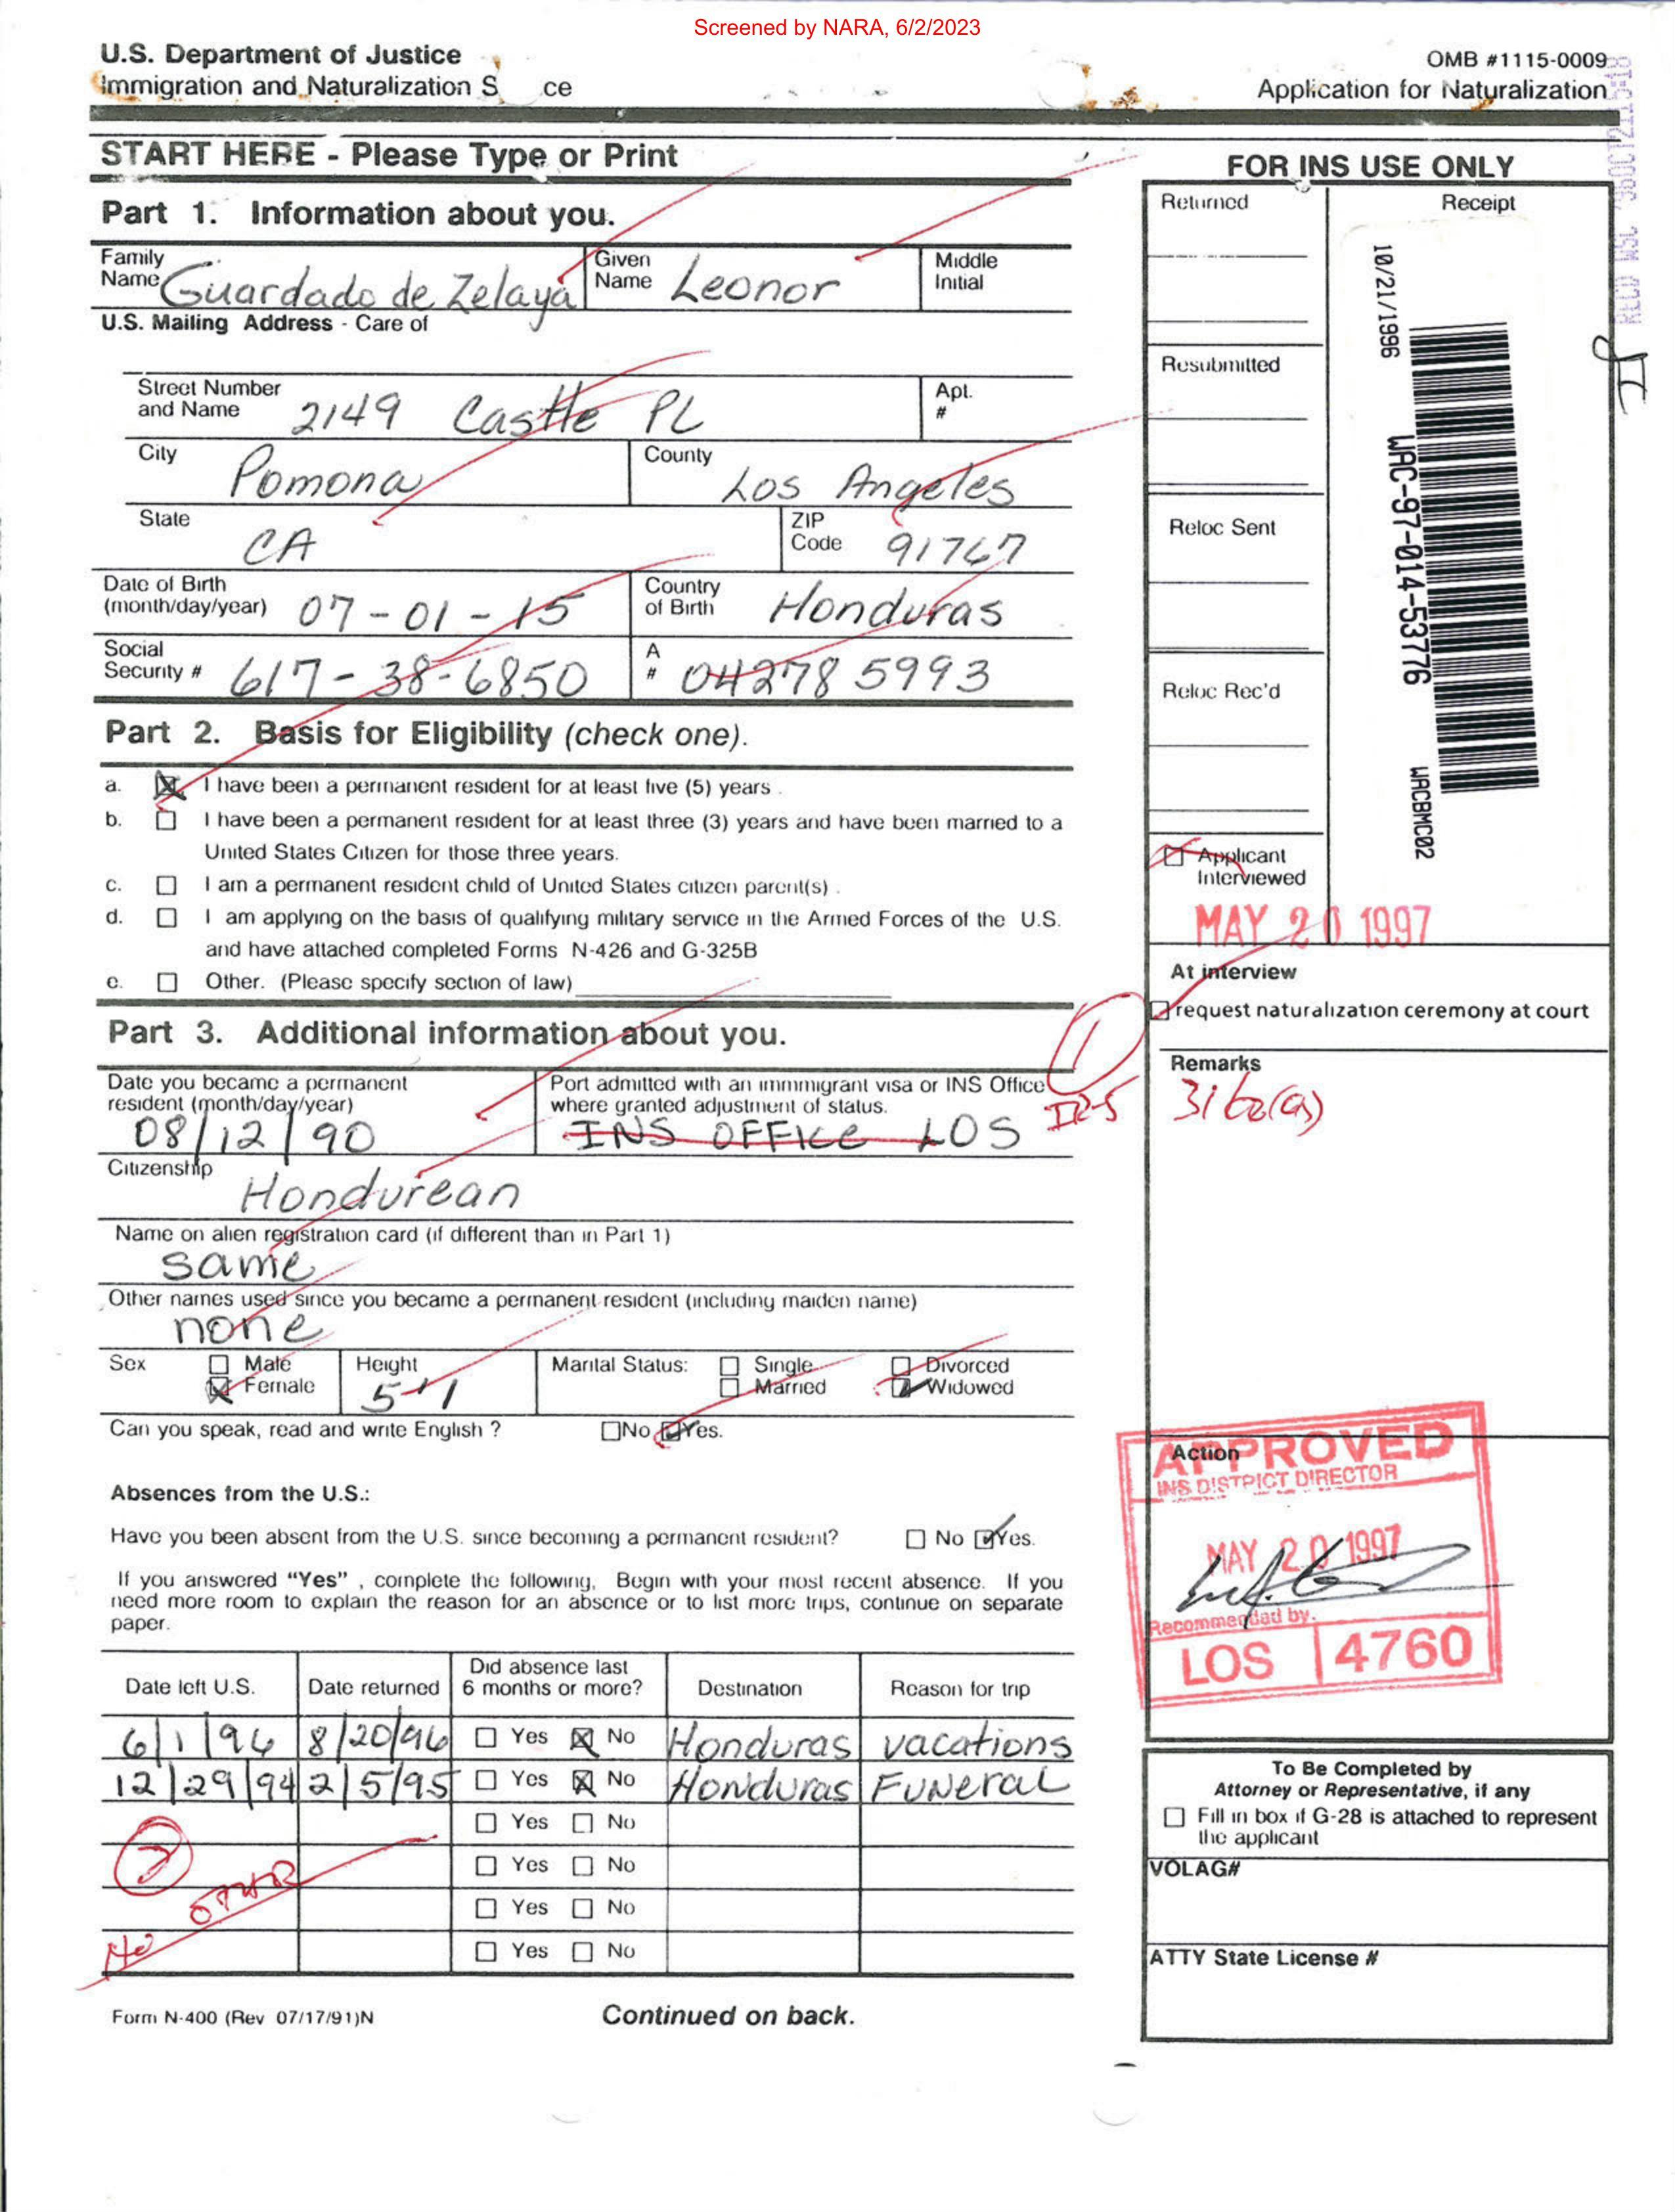 Screened by NARA, 6/2/2023
U.S. Department of Justice
Immigration and Naturalization S ce
OMB #1115-0009
Application for Naturalization
START HERE - Please Type or Print
Part 1. Information about you.
Family Name Guardado de Zelaya
Given Name Leonor
Middle Initial
U.S. Mailing Address - Care of
Street Number and Name 2149 Castle PL
Apt. #
City Pomona
County Los Angeles
State CA
ZIP Code 91767
Date of Birth (month/day/year) 07-01-15
Country of Birth Honduras
Social Security # 617-38-6850
A # 04278 5993
Part 2. Basis for Eligibility (check one).
a. I have been a permanent resident for at least five (5) years .
b. I have been a permanent resident for at least three (3) years and have been married to a
United States Citizen for those three years.
c. I am a permanent resident child of United States citizen parent(s) .
d. I am applying on the basis of qualifying military service in the Armed Forces of the U.S.
and have attached completed Forms N-426 and G-325B
e. Other. (Please specify section of law)
Part 3. Additional information about you.
Date you became a permanent resident (month/day/year)
08/12/90
Port admitted with an immmigrant visa or INS Office
where granted adjustment of status.
INS OFFICE LOS
Citizenship
Hondurean
Name on alien registration card (if different than in Part 1)
same
Other names used since you became a permanent resident (including maiden name)
none
Sex Male Female
Height 5-11
Marital Status: Single Married Divorced Widowed
Can you speak, read and write English ? No Yes.
Absences from the U.S.:
Have you been absent from the U.S. since becoming a permanent resident? No Yes.
If you answered "Yes" , complete the following, Begin with your most recent absence. If you
need more room to explain the reason for an absence or to list more trips, continue on separate
paper.
Date left U.S. Date returned Did absence last 6 months or more? Destination Reason for trip
6/1/96 8/20/96 Yes No Honduras vacations
12/29/94 2/5/95 Yes No Honduras Funeral
Yes No
Yes No
Yes No
Yes No
2
No
Form N-400 (Rev 07/17/91)N
Continued on back.
FOR INS USE ONLY
Returned
Receipt
Resubmitted
Reloc Sent
Reloc Rec'd
10/21/1996
WAC-97-014-53776
WACBMC02
Applicant Interviewed
MAY 20 1997
At interview
request naturalization ceremony at court
Remarks
Action
APPROVED
INS DISTRICT DIRECTOR
MAY 20 1997
Recommended by.
LOS 4760
To Be Completed by
Attorney or Representative, if any
Fill in box if G-28 is attached to represent
the applicant
VOLAG#
ATTY State License #